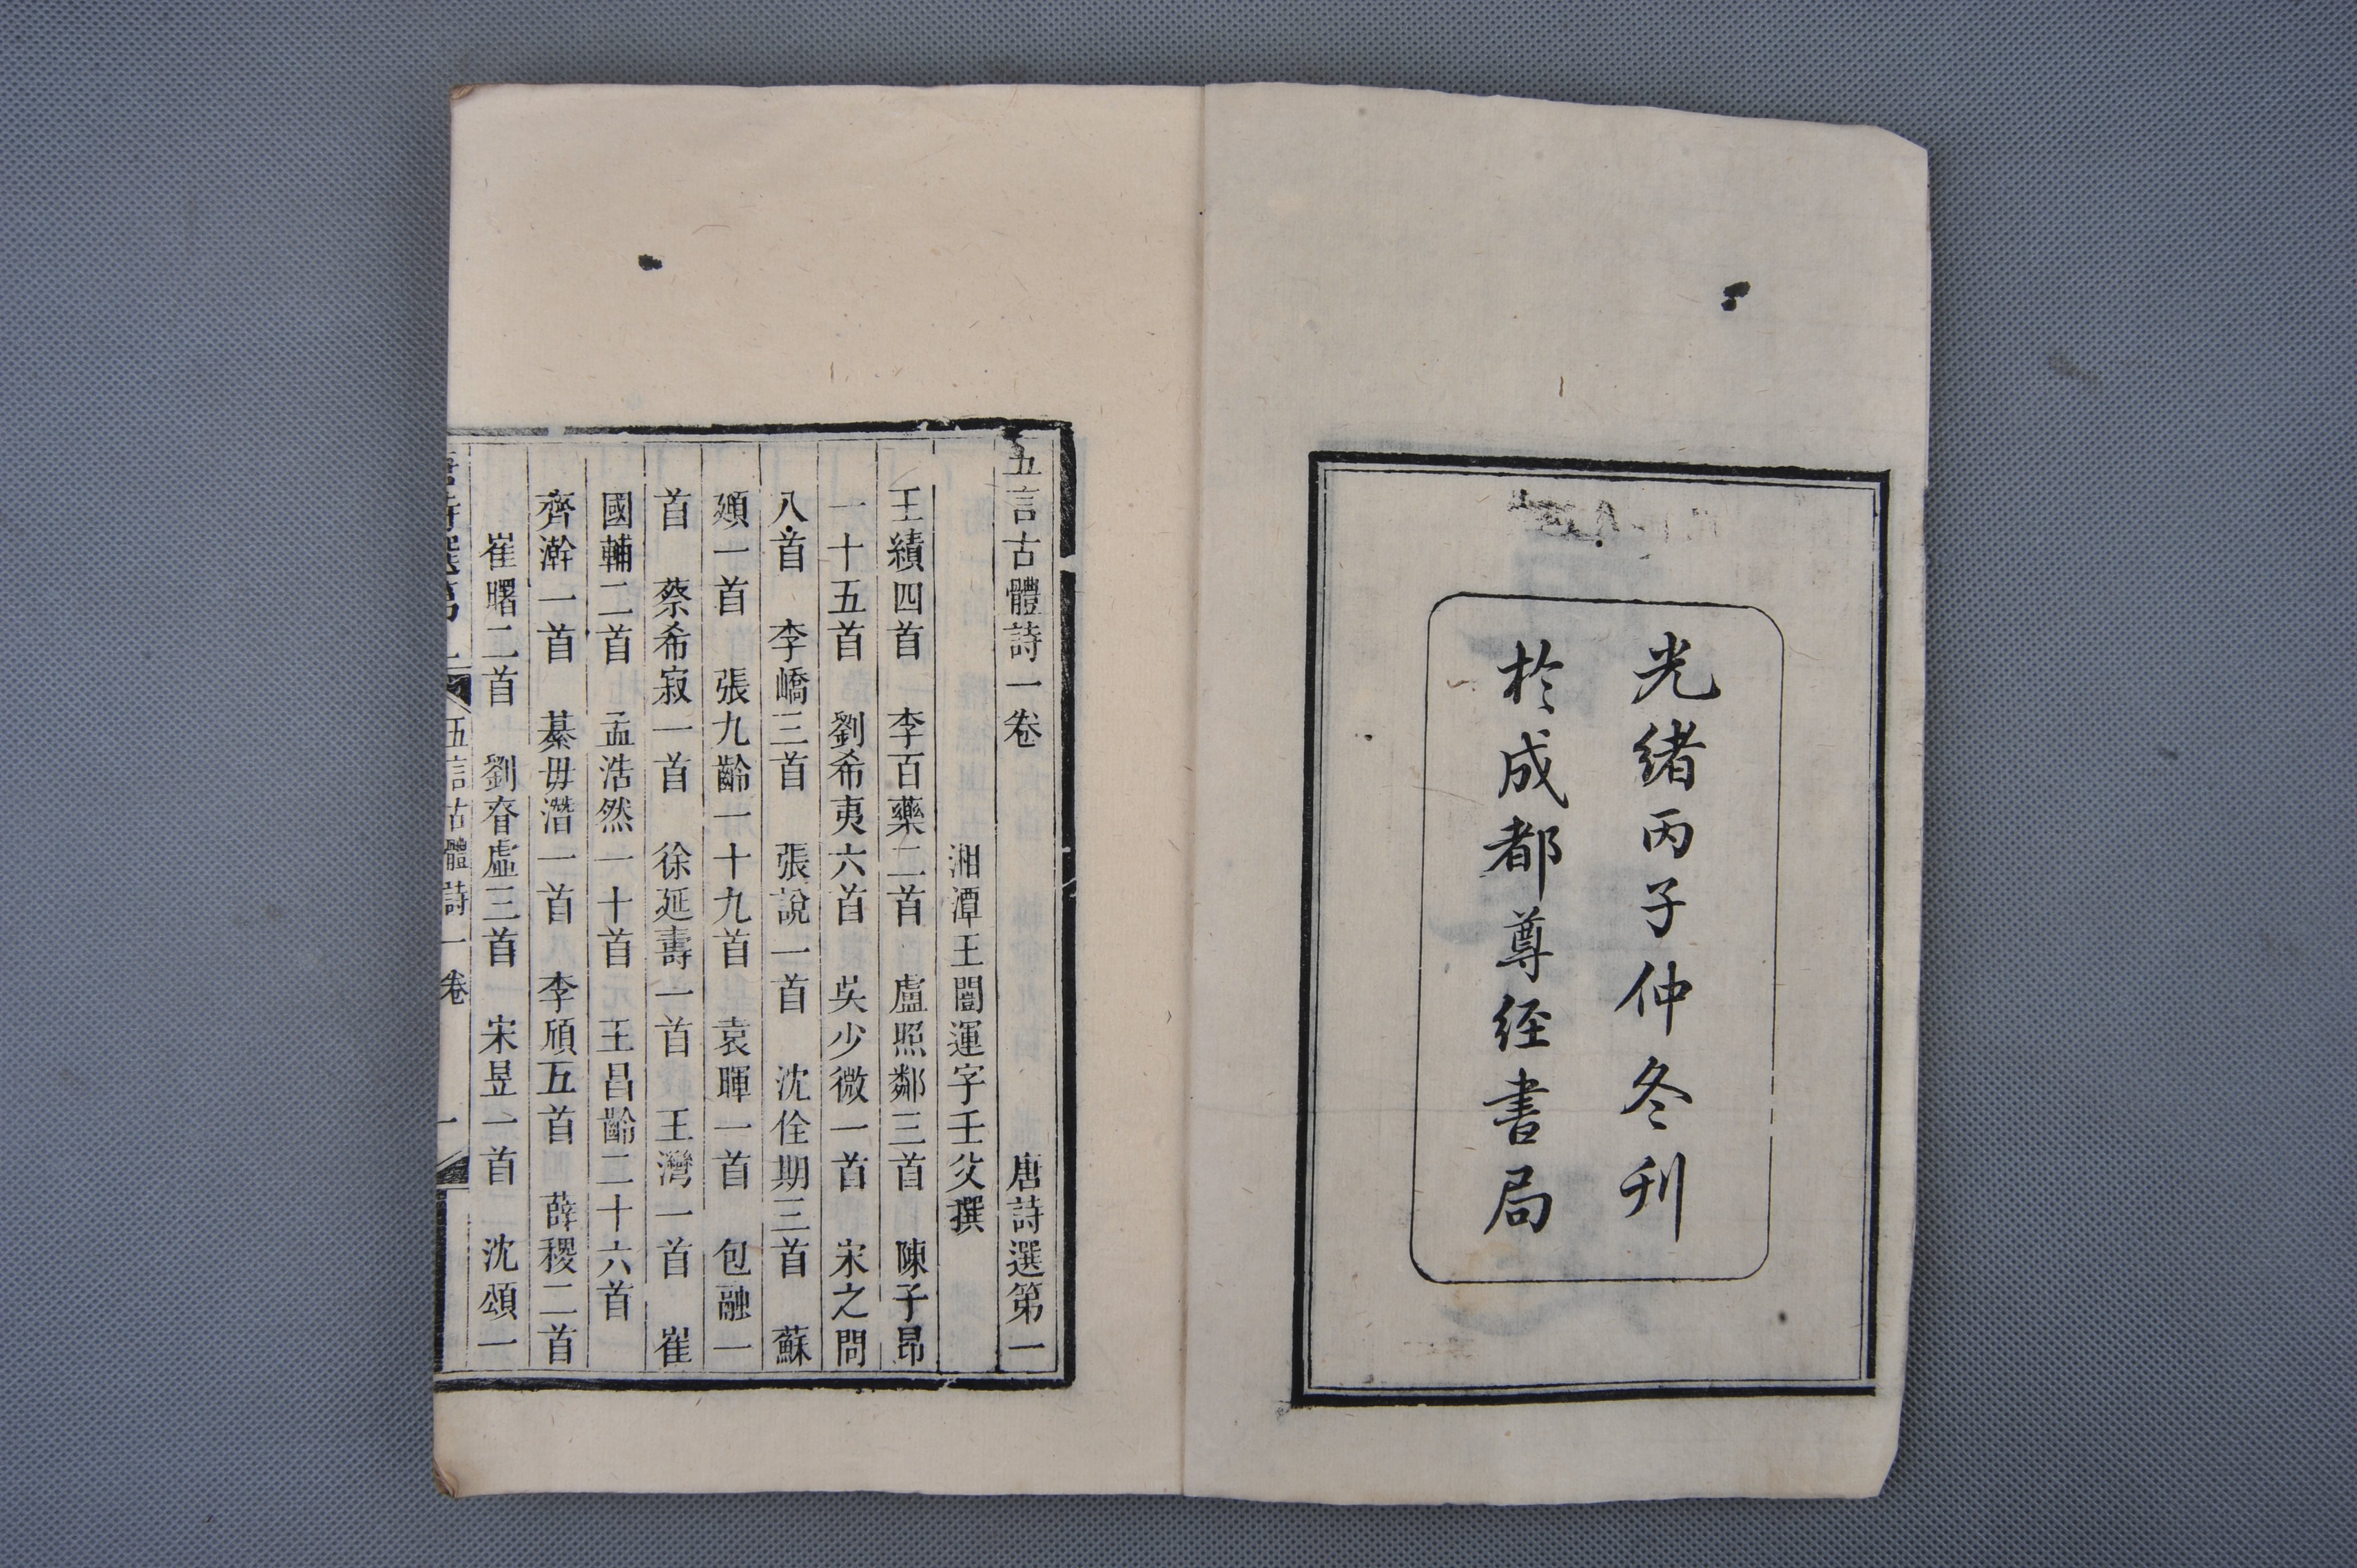 光緒丙子仲冬刊
於成都尊經書局
五言古體詩一卷 唐詩選第一
湘潭王闓運字壬父撰
王績四首 李百藥二首 盧照鄰三首 陳子昂
一十五首 劉希夷六首 吳少微一首 宋之問
八首 李嶠三首 張說一首 沈佺期三首 蘇
頲一首 張九齡一十九首 袁暉一首 包融一
首 蔡希寂一首 徐延壽一首 王灣一首 崔
國輔二首 孟浩然一十首 王昌齡二十六首
齊澣一首 綦毋潛一首 李頎五首 薛稷二首
崔曙二首 劉眘虛三首 宋昱一首 沈頌一
唐詩選第一 五言古體詩一卷 一